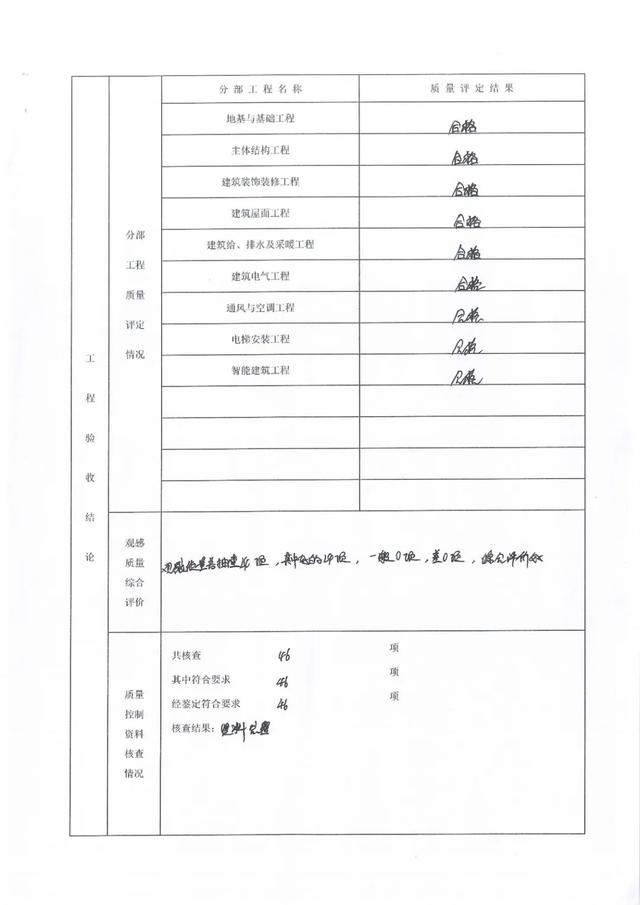 分部工程名称 质量评定结果
地基与基础工程 合格
主体结构工程 合格
建筑装饰装修工程 合格
建筑屋面工程 合格
建筑给、排水及采暖工程 合格
建筑电气工程 合格
通风与空调工程 合格
电梯安装工程 合格
智能建筑工程 合格
分部
工程
质量
评定
情况
工
程
验
收
结
论
观感
质量
综合
评价
抽查 项,其中好的 项,一般0项,差0项,综合评价好
质量
控制
资料
核查
情况
共核查 46 项
其中符合要求 46 项
经鉴定符合要求 46 项
核查结果:资料完整